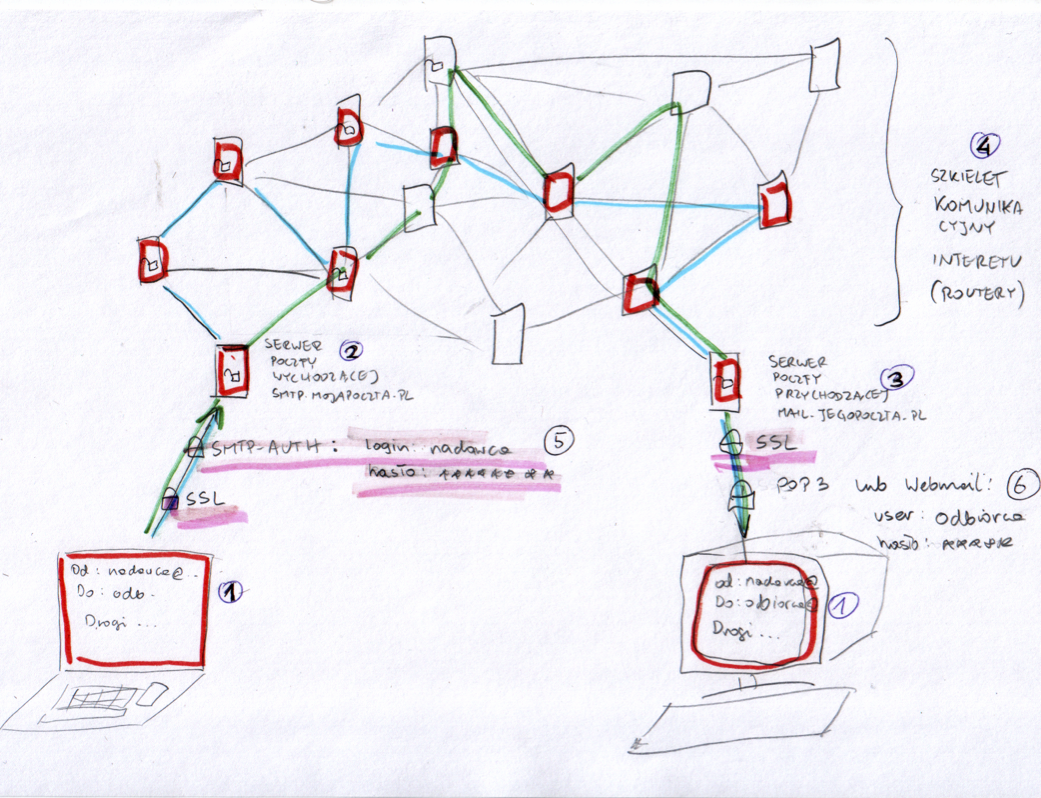 4
SZKIELET
KOMUNIKA
CYJNY
INTERETU
(ROUTERY)
SERWER 2
POCZTY
WYCHODZĄCEJ
SMTP.MOJAPOCZTA.PL
SERWER
POCZTY 3
PRZYCHODZĄCEJ
MAIL.JEGOPOCZTA.PL
SMTP-AUTH: login: nadawca 5
hasło: ********
SSL
SSL
POP3 lub Webmail: 6
user: odbiorca
hasło: *****
Od: nadawca@..
Do: odb.
Drogi ...
1
od: nadawca@
Do: odbiorca@
Drogi ...
1